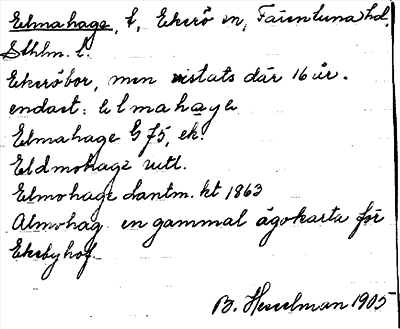 Elmahage, t, Ekerö sn, Färentuna hd,
Sthlm. l.
Ekeröbor, men vistats där 16 år.
endast: elmahage
Elmahage G f5, ek.
Eldmohage uttl.
Elmohage Lantm. kt 1863
Almohag en gammal ägokarta för
Ekebyhof.
B. Hesselman 1905